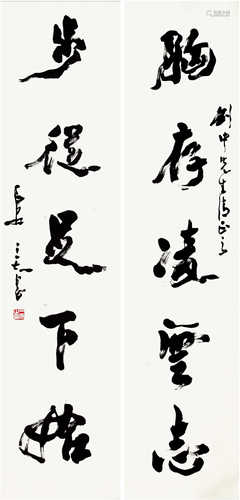 胸存凌雲志
劍中先生清正之
步從足下始